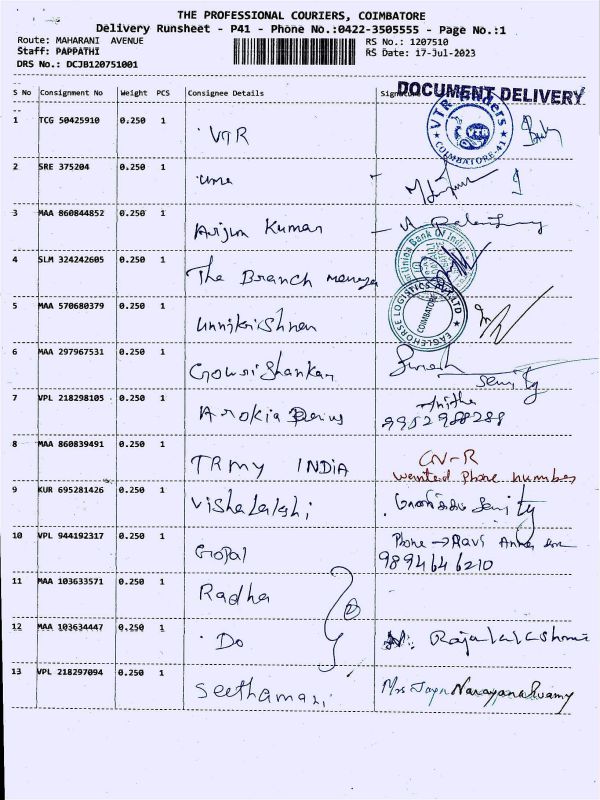 THE PROFESSIONAL COURIERS, COIMBATORE
Delivery Runsheet - P41 - Phone No.:0422-3505555 - Page No.:1
Route: MAHARANI AVENUE
RS No.: 1207510
Staff: PAPPATHI
RS Date: 17-Jul-2023
DRS No.: DCJB120751001
DOCUMENT DELIVERY
S No Consignment No Weight PCS Consignee Details
1 TCG 50425910 0.250 1 VTR
VTR
COIMBATORE-41
2 SRE 375204 0.250 1 uma
3 MAA 860844852 0.250 1 Arjun Kumar
4 SLM 324242605 0.250 1 The Branch manager
Union Bank Of India
5 MAA 570680379 0.250 1 Unnikrishnan
EAGLEHORSE LOGISTICS PVT LTD
COIMBATORE
6 MAA 297967531 0.250 1 Gowri Shankar Suresh
Security
7 VPL 218298105 0.250 1 Arokia Anitha
9952988288
8 MAA 860839491 0.250 1 TRmy INDIA CN-R
wanted Phone number
9 KUR 695281426 0.250 1 Vishalalshi
10 VPL 944192317 0.250 1 Gopal Phone → Ravi Anna
9894646210
11 MAA 103633571 0.250 1 Radha
2
12 MAA 103634447 0.250 1 Do Rajalalashmi
13 VPL 218297094 0.250 1 Seethamani Mrs Jaya Narayanaswamy